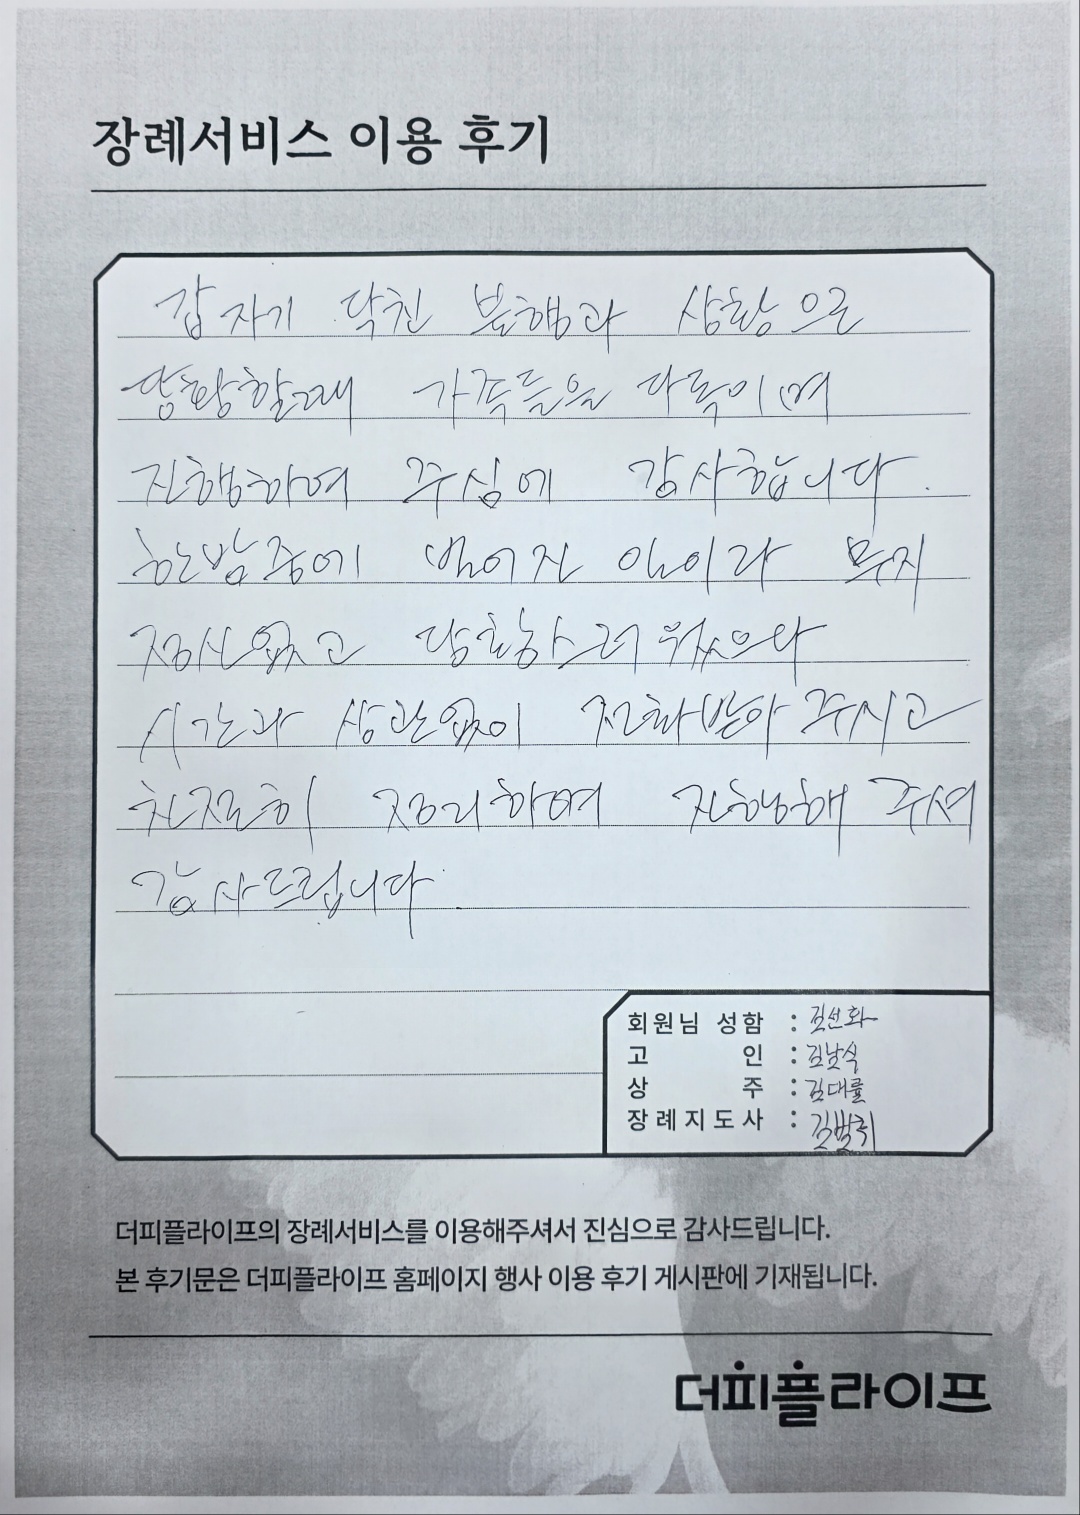 장례서비스 이용 후기
갑자기 닥친 불행과 상황으로
당황할때 가족들을 다독이며
진행하여 주심에 감사합니다.
한밤중에 벌어진 일이라 무지
정신없고 당황스러웠으나
시간과 상관없이 전화받아 주시고
친절히 정리하며 진행해 주셔
감사드립니다.
회원님 성함 : 김선화
고 인 : 김남식
상 주 : 김대률
장례지도사 :
더피플라이프의 장례서비스를 이용해주셔서 진심으로 감사드립니다.
본 후기문은 더피플라이프 홈페이지 행사 이용 후기 게시판에 기재됩니다.
더피플라이프